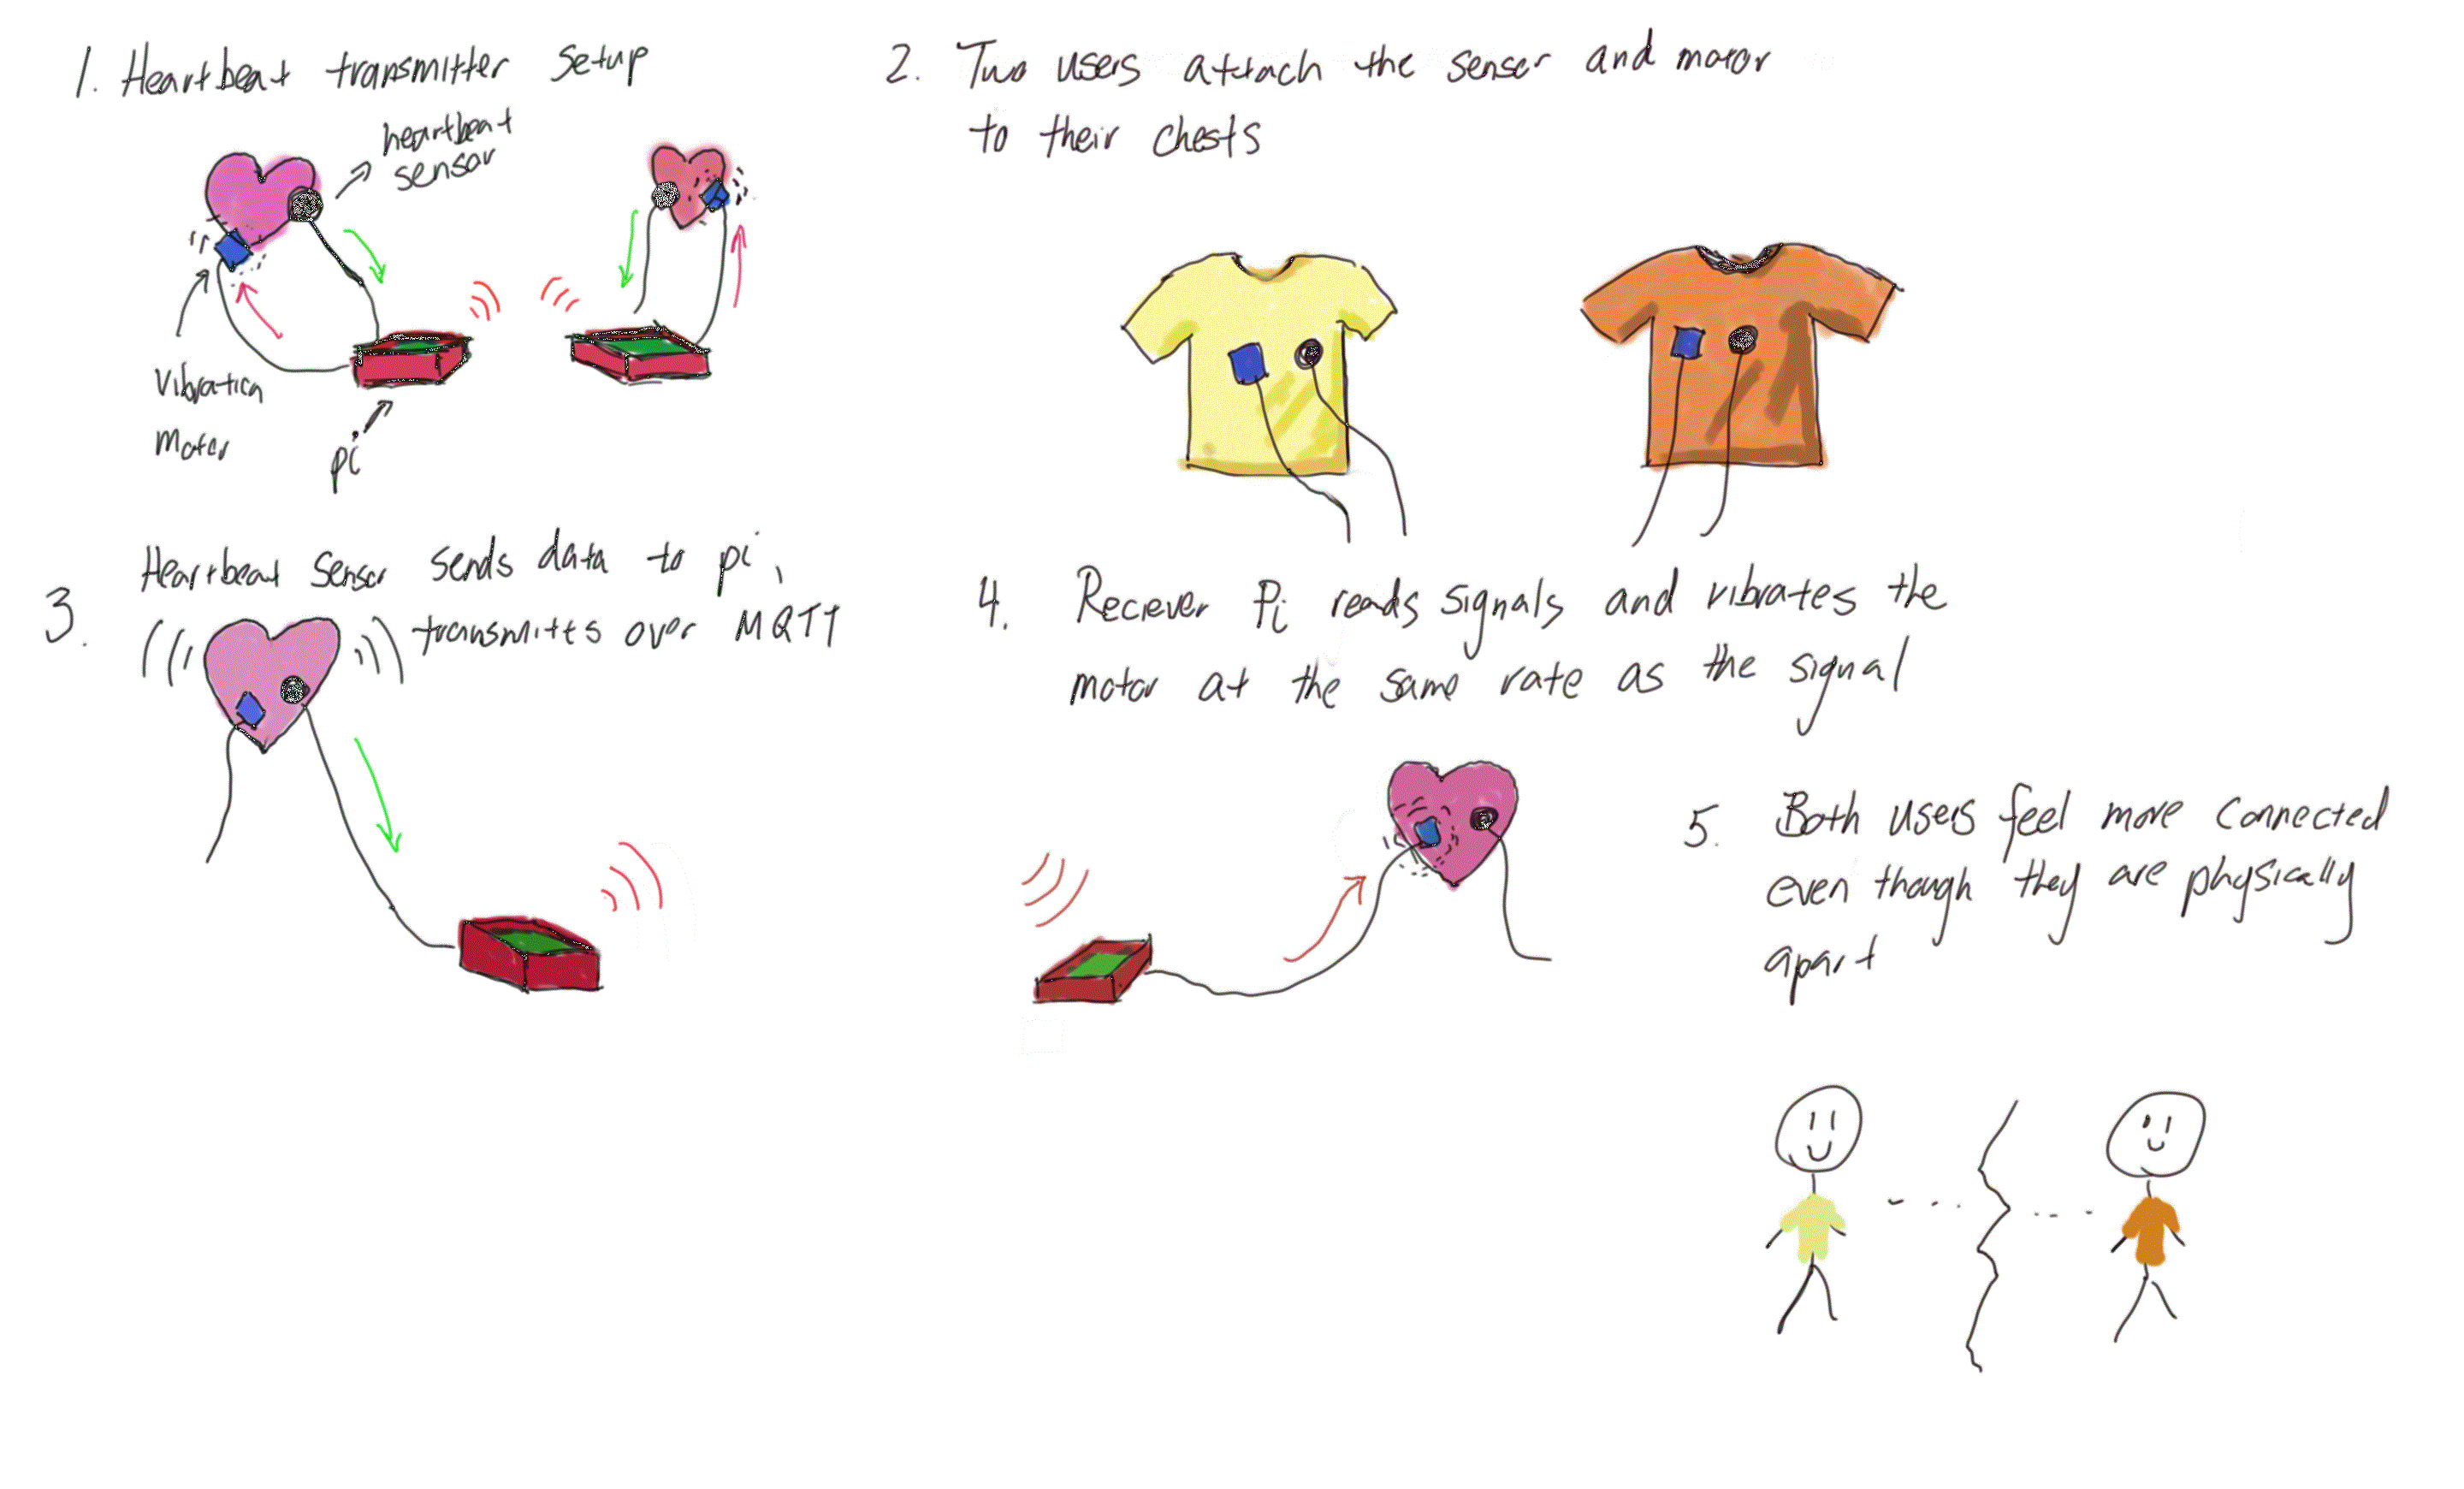 1. Heartbeat transmitter setup
heartbeat
sensor
vibration
motor
pi
2. Two users attach the sensor and motor
to their chests
3. Heartbeat sensor sends data to pi,
transmitts over MQTT
4. Reciever Pi reads signals and vibrates the
motor at the same rate as the signal
5. Both users feel more connected
even though they are physically
apart